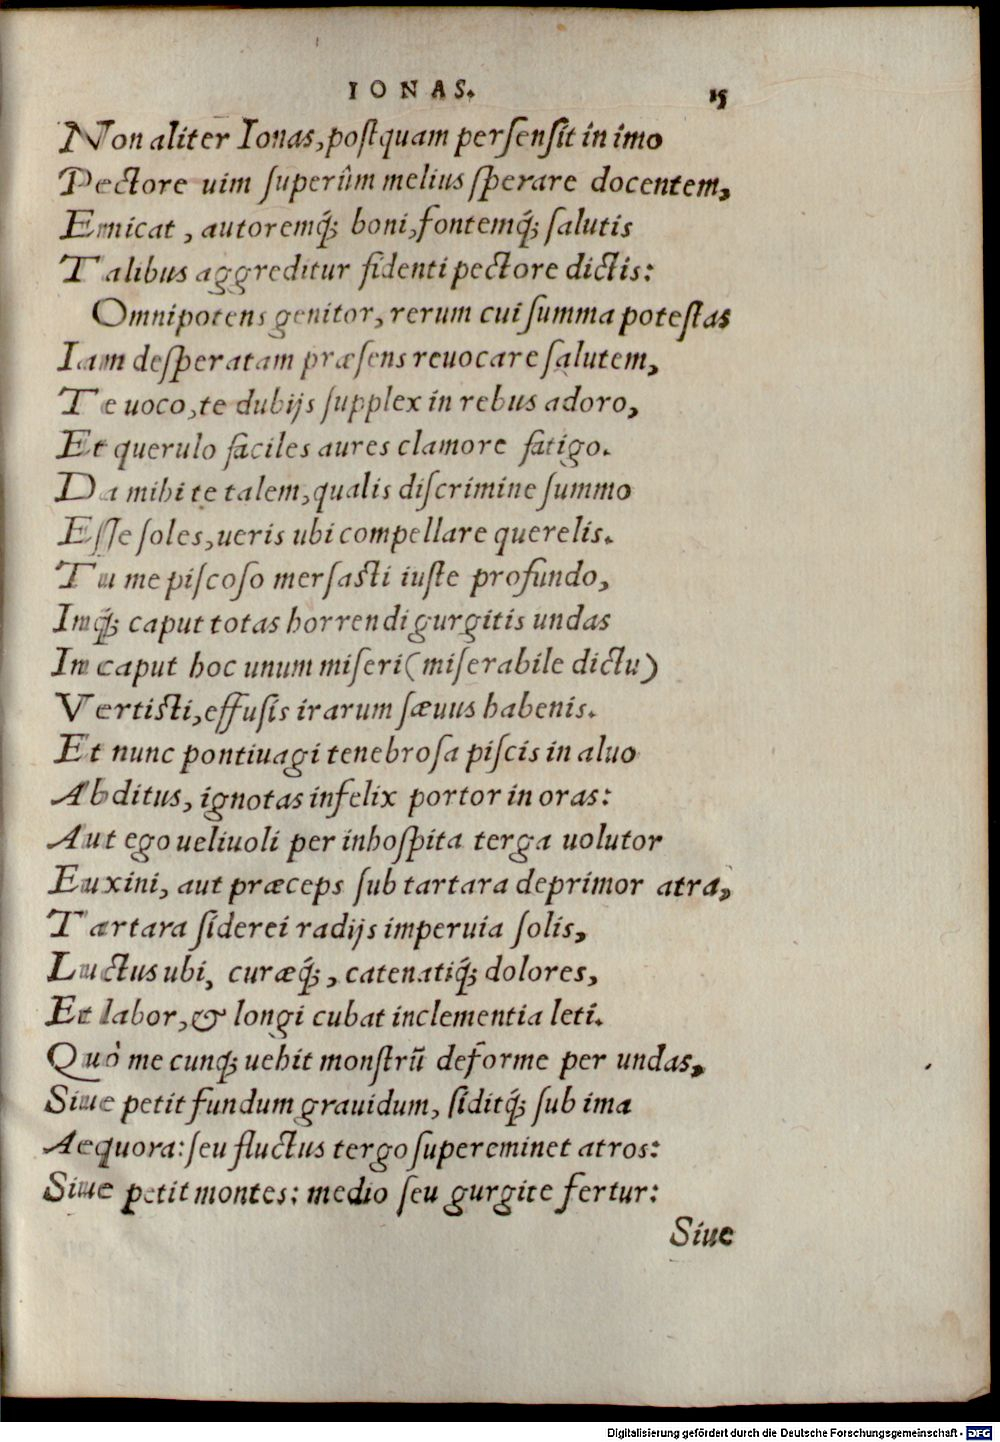 IONAS. 15
Non aliter Ionas, poſtquam perſenſit in imo
Pectore uim ſuperûm melius ſperare docentem,
Emicat, autoremq́; boni, fontemq́; ſalutis
Talibus aggreditur fidenti pectore dictis:
Omnipotens genitor, rerum cui ſumma poteſtas
Iam deſperatam præſens reuocare ſalutem,
Te uoco, te dubijs ſupplex in rebus adoro,
Et querulo faciles aures clamore fatigo.
Da mihi te talem, qualis diſcrimine ſummo
Eſſe ſoles, ueris ubi compellare querelis.
Tu me piſcoſo merſaſti iuſte profundo,
Inq́; caput totas horrendi gurgitis undas
In caput hoc unum miſeri (miſerabile dictu)
Vertiſti, effuſis irarum ſæuus habenis.
Et nunc pontiuagi tenebroſa piſcis in aluo
Abditus, ignotas infelix portor in oras:
Aut ego ueliuoli per inhoſpita terga uolutor
Euxini, aut præceps ſub tartara deprimor atra,
Tartara ſiderei radijs imperuia ſolis,
Luctus ubi, curæq́;, catenatiq́; dolores,
Et labor, & longi cubat inclementia leti.
Quò me cunq; uehit monſtrū deforme per undas,
Siue petit fundum grauidum, ſiditq́; ſub ima
Aequora: ſeu fluctus tergo ſupereminet atros:
Siue petit montes: medio ſeu gurgite fertur:
Siue
Digitalisierung gefördert durch die Deutsche Forschungsgemeinschaft - DFG